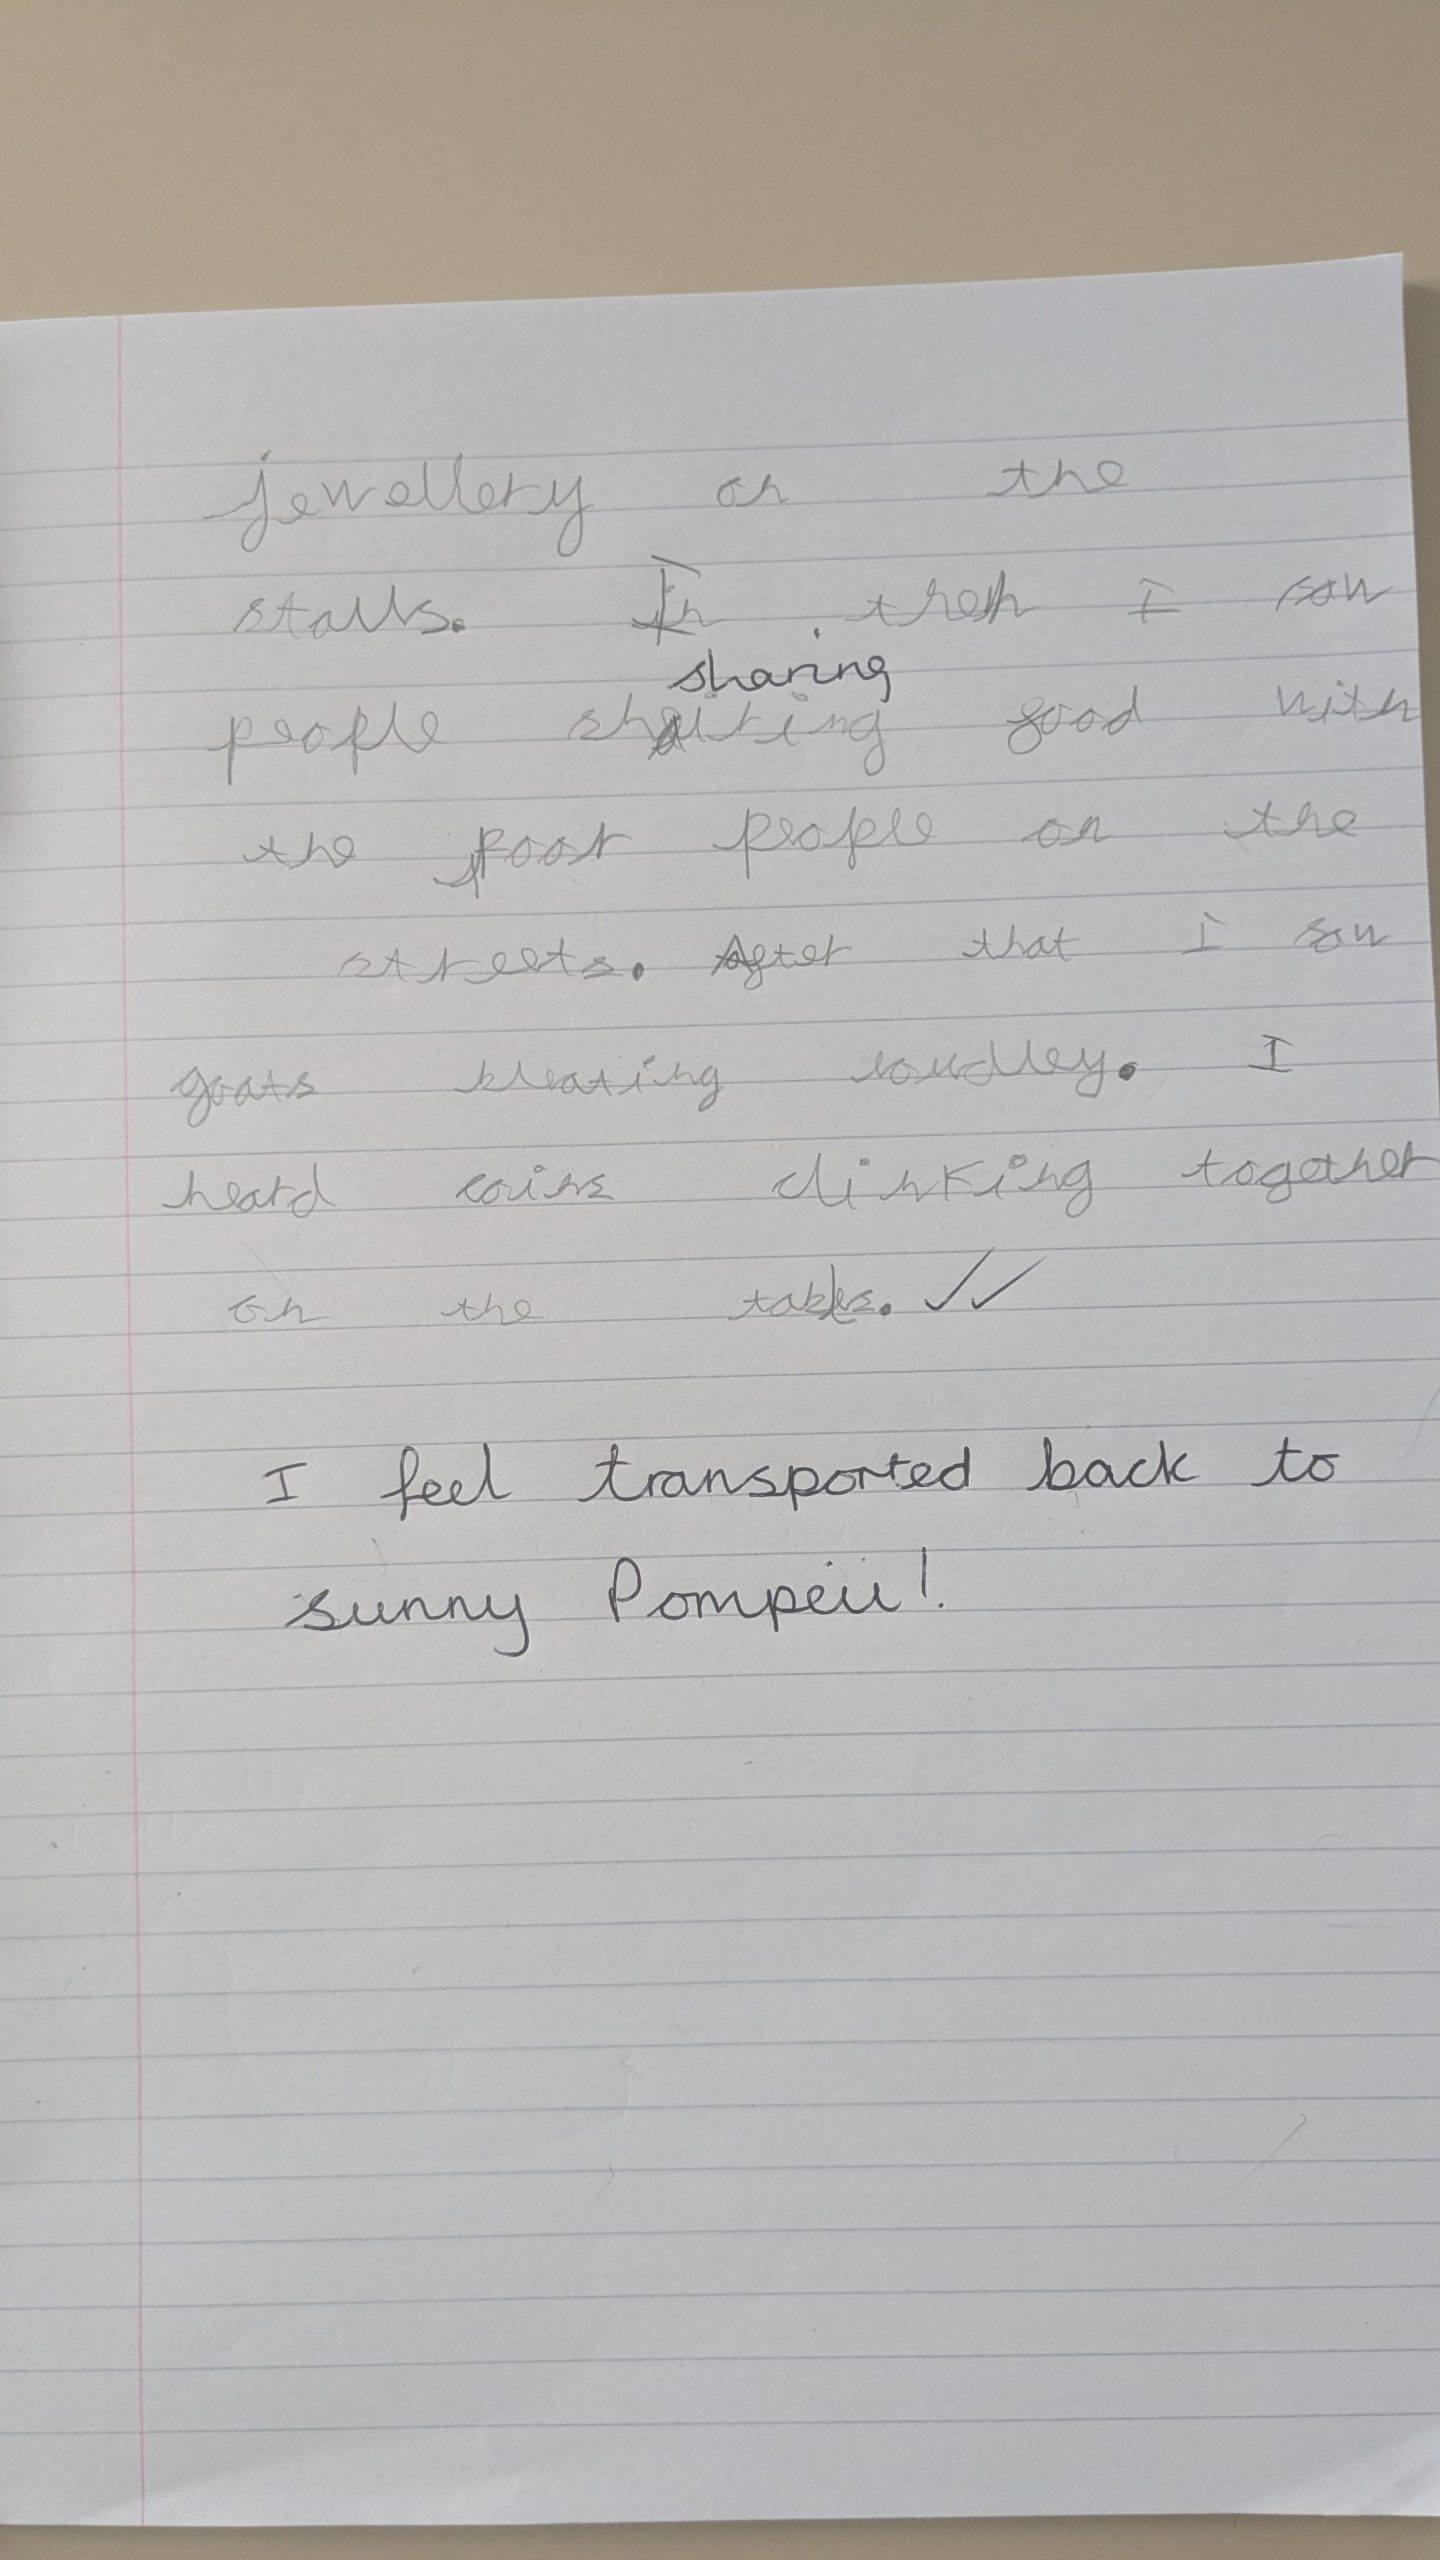 jewellery on the
stalls. In then I saw
sharing
people shairing food with
the poor people on the
streets. After that I saw
goats bleating loudley. I
heard coins clinking together
on the tables. ✓✓
I feel transported back to
sunny Pompeii!